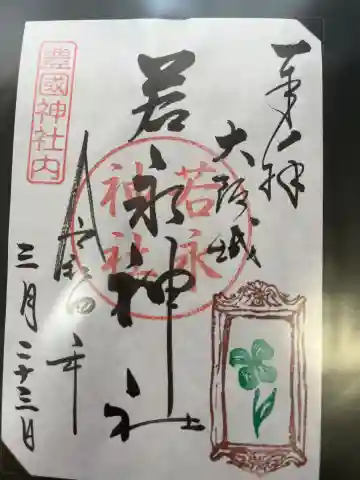 奉拝
大阪城
若永神社
若永
神社
豊國神社内
令和四年
三月二十三日